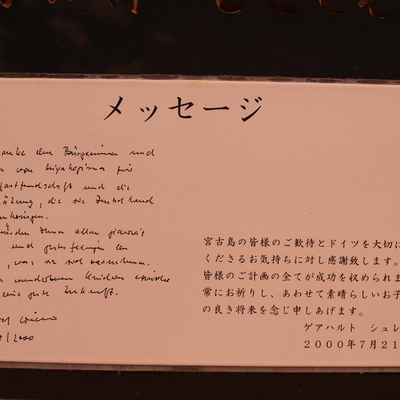 メッセージ
den Bürgerinnen und
von Miyakojima für
und die
die sie Deutschland
Ihnen allen
und gutes Gelingen bei
was sie sich vornehmen.
wunderbaren Kindern wünsche
eine gute Zukunft.
2000
宮古島の皆様のご歓待とドイツを大切に
くださるお気持ちに対し感謝致します。
皆様のご計画の全てが成功を収められま
常にお祈りし、あわせて素晴らしいお子
の良き将来を念じ申しあげます。
ゲアハルト　シュレ
2000年7月21